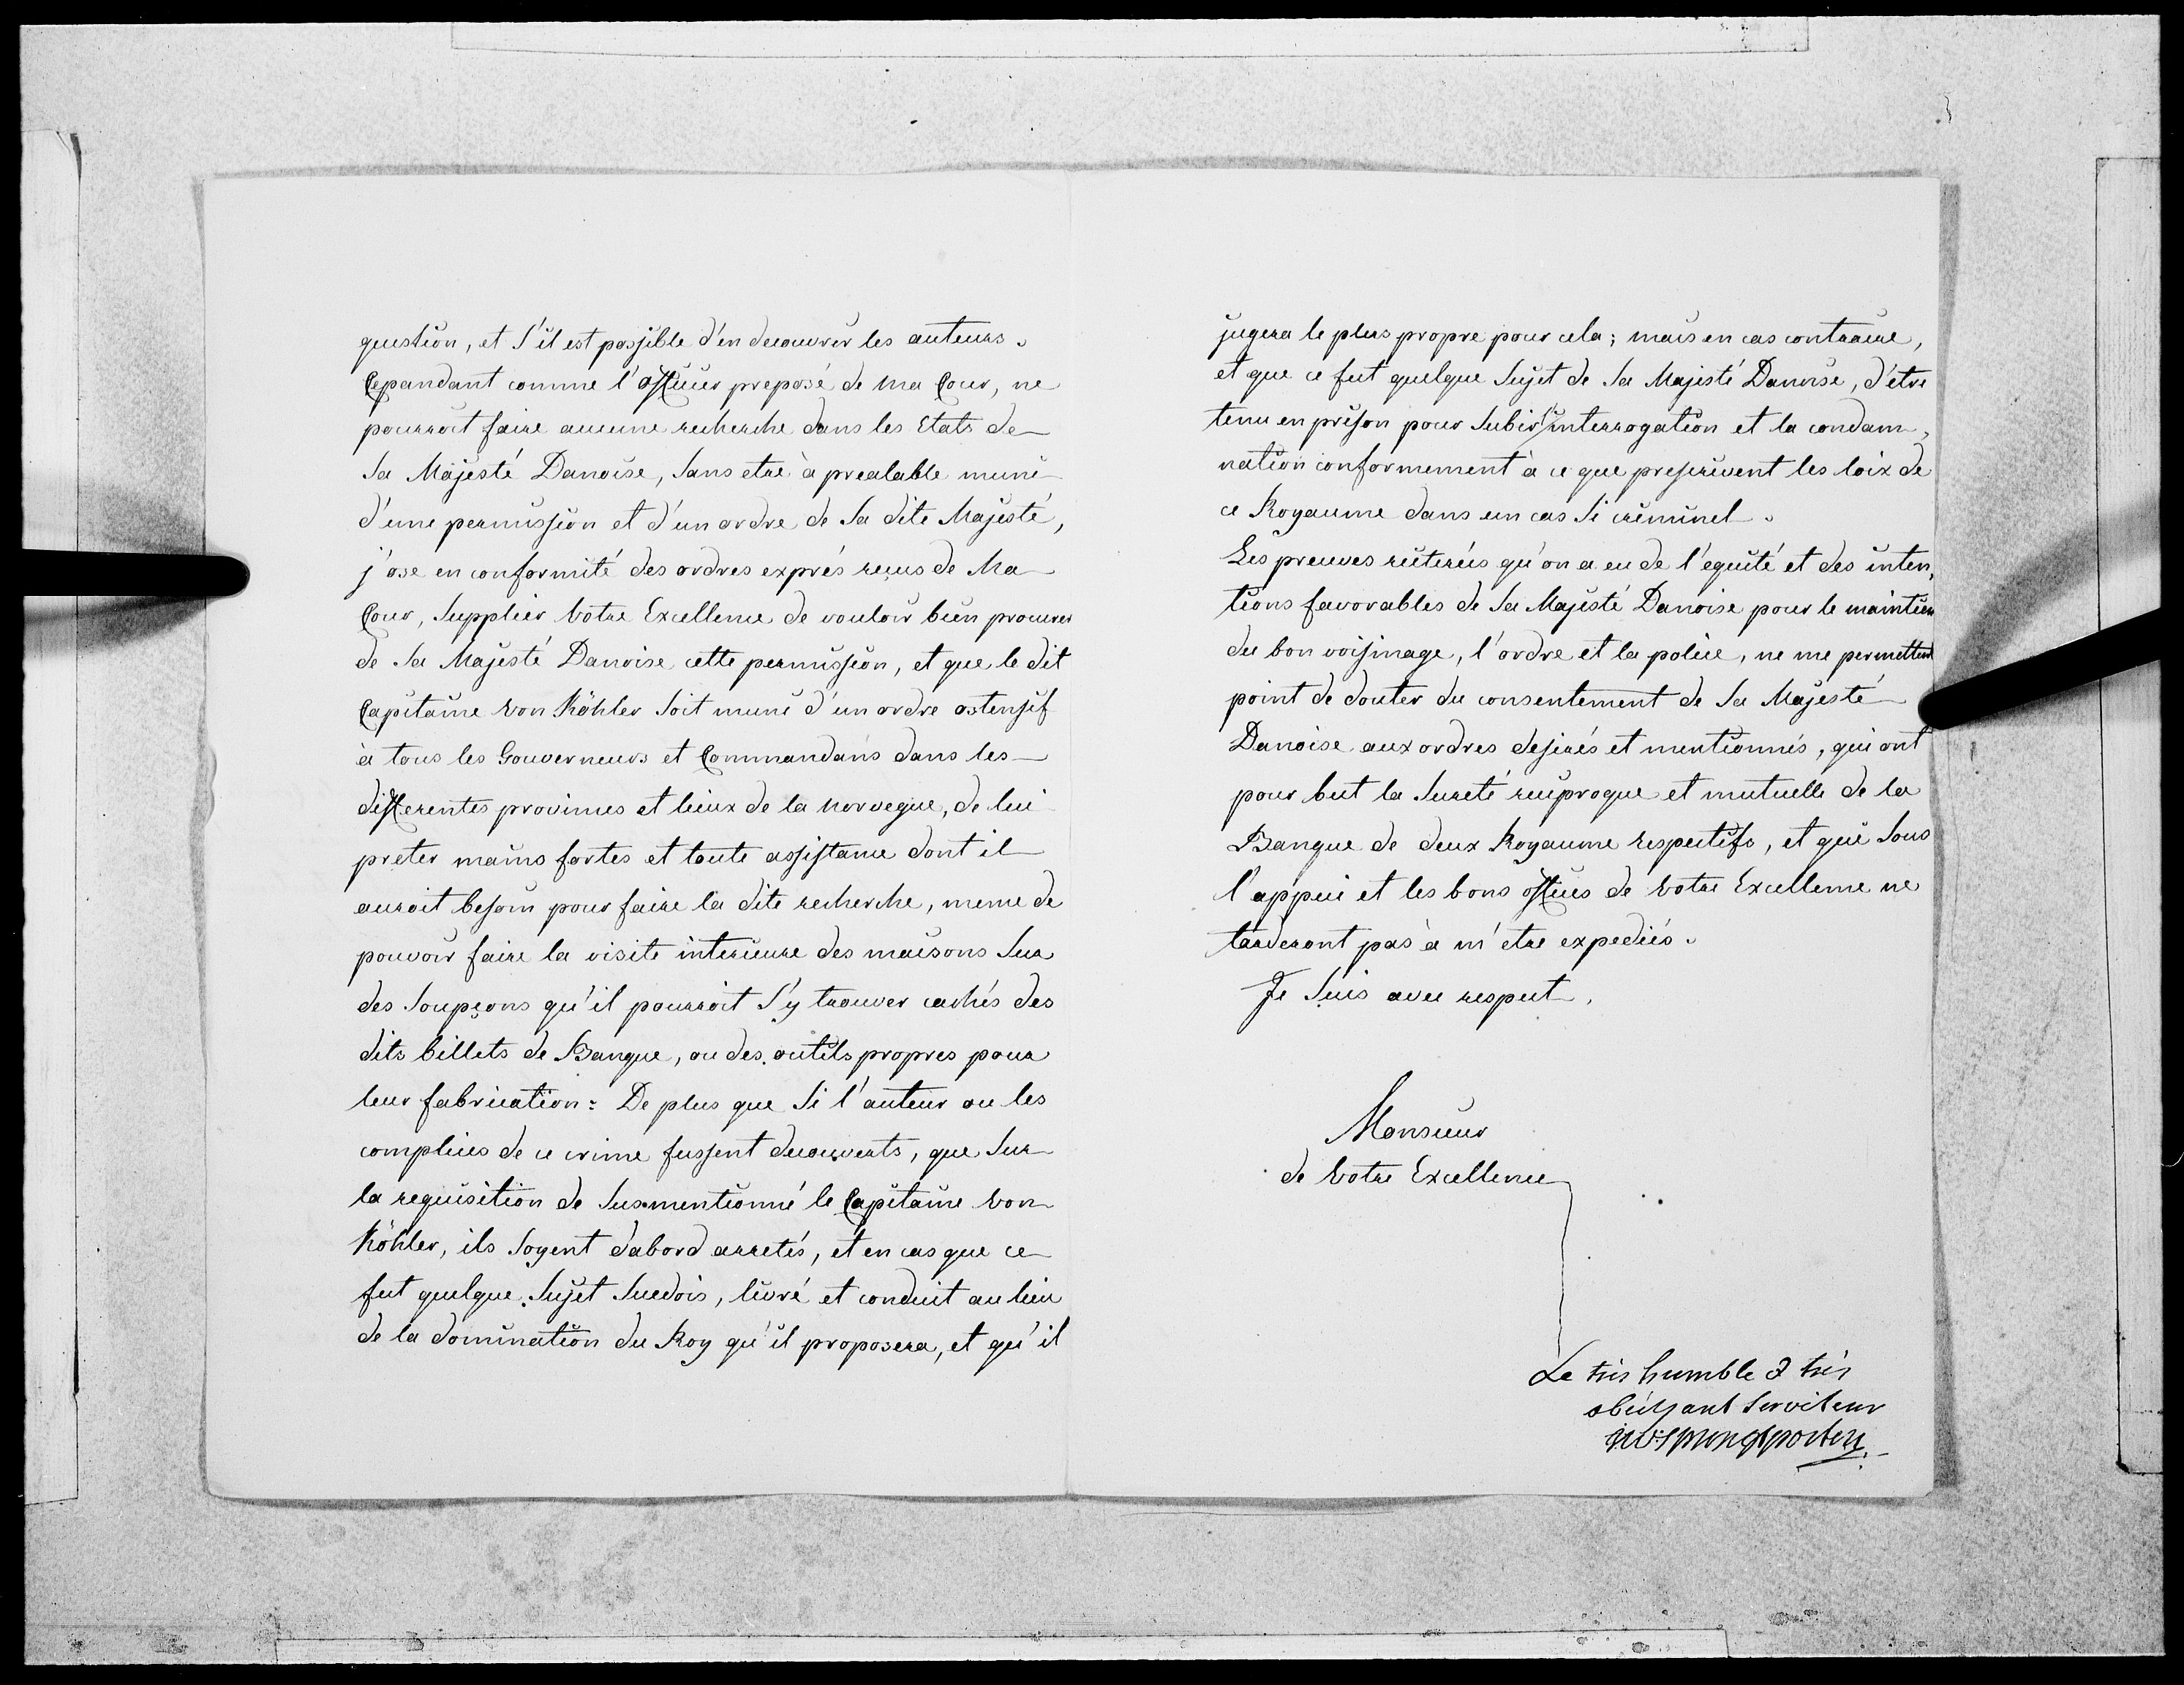 question, et s'il est possible d'en decouvrir les auteurs.
Cepandant comme l'officier preposé de ma Cour, ne
pourroit faire aucune recherche dans les Etats de
Sa Majesté Danoise, sans etre à prealable muni
d'une permission et d'un ordre de Sa dite Majesté,
j'ose en conformité des ordres exprés reçus de Ma
Cour, supplier Votre Excellence de vouloir bien procurer
de Sa Majesté Danoise cette permission, et que le dit
Capitaine von Köhler soit muni d'un ordre ostensif
à tous les Gouverneurs et Commandans dans les
differentes provinces et lieux de la Norvegue, de lui
preter mains fortes et toute assistance dont il
auroit besoin pour faire la dite recherche, meme de
pouvoir faire la visite interieure des maisons sur
des soupçons qu'il pourroit s'y trouver cachés des
dits billets de Banque, ou des outils propres pour
leur fabrication: De plus que si l'auteur ou les
complices de ce crime fussent decouverts, que sur
la requisition de susmentionné le Capitaine von
Köhler, ils soyent dabord arretés, et en cas que ce
fut quelque Sujet Suedois, livré et conduit au lieu
de la domination du Roy qu'il proposera, et qu'il
jugera le plus propre pour cela; mais en cas contraire,
et que ce fut quelque Sujet de Sa Majesté Danoise, d'être
tenu en prison pour subir l'interrogation et la condam,
nation conformement à ce que prescrivent les loix de
ce Royaume dans un cas si criminel.
Les preuves reiterées qu'on a eu de l'equité et des inten,
tions favorables de Sa Majesté Danoise pour le maintien
du bon voisinage, l'ordre et la police, ne me permettent
point de douter du consentement de Sa Majesté
Danoise aux ordres desirés et mentionnés, qui ont
pour but la sureté reciproque et mutuelle de la
Banque de deux Royaume respectifs, et qui sous
l'appui et les bons offices de Votre Excellence ne
tarderont pas à m'etre expediés.
Je suis avec respect,
Monsieur
de Votre Excellence
Le très humble & très
obéissant serviteur
Sprengtporten